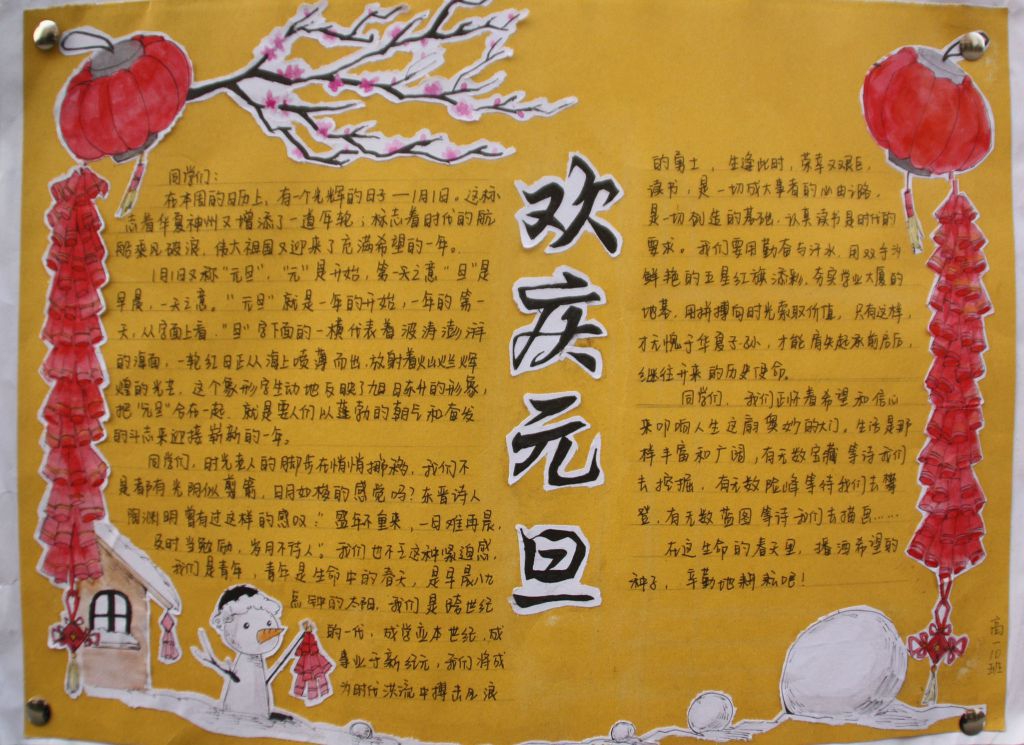 欢庆元旦
同学们：
在本周的日历上，有一个光辉的日子——1月1日。这标
志着华夏神州又增添了一道年轮；标志着时代的航
船乘风破浪，伟大祖国又迎来了充满希望的一年。
1月1日又称"元旦"，"元"是开始，第一天之意"旦"是
早晨，一天之意。"元旦"就是一年的开始，一年的第一
天，从字面上看，"旦"字下面的一横代表着波涛澎湃
的海面，一轮红日正从海上喷薄而出，放射着灿烂辉
煌的光芒，这个象形字生动地反映了旭日东升的形象，
把"元旦"合在一起，就是要人们以蓬勃的朝气和奋发
的斗志来迎接崭新的一年。
同学们，时光老人的脚步在悄悄挪移，我们不
是都有光阴似箭，日月如梭的感觉吗？东晋诗人
陶渊明曾有过这样的感叹："盛年不重来，一日难再晨，
及时当勉励，岁月不待人"。我们也不乏这种紧迫感，
我们是青年，青年是生命中的春天，是早晨八九
点钟的太阳，我们是跨世纪
的一代，成学业本世纪，成
事业于新纪元，我们将成
为时代洪流中搏击风浪
的勇士，生逢此时，荣幸又艰巨，
读书，是一切成大事者的必由之路，
是一切创造的基础，认真读书是时代的
要求。我们要用勤奋与汗水，用双手为
鲜艳的五星红旗添彩，夯实学业大厦的
地基，用拼搏向时光索取价值，只有这样，
才无愧于华夏子孙，才能肩负起承前启后，
继往开来的历史使命。
同学们，我们正怀着希望和信心
来叩响人生这扇奥妙的大门。生活是那
样丰富和广阔，有无数宝藏等待我们
去挖掘，有无数险峰等待我们去攀
登，有无数蓝图等待我们去描画……
在这生命的春天里，播洒希望的
种子，辛勤地耕耘吧！
高一10班